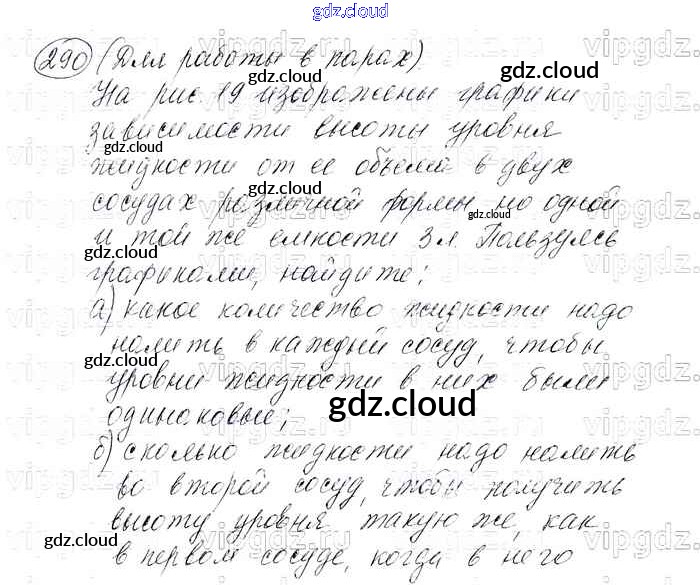 gdz.cloud
290 (Для работы в парах).
На рис. 19 изображены графики
зависимости высоты уровня
жидкости от ее объема в двух
сосудах различной формы, но одной
и той же емкости 3 л. Пользуясь
графиками, найдите:
а) какое количество жидкости надо
налить в каждый сосуд, чтобы
уровни жидкости в них были
одинаковые;
б) сколько жидкости надо налить
во второй сосуд, чтобы получить
высоту уровня, такую же, как
в первом сосуде, когда в него